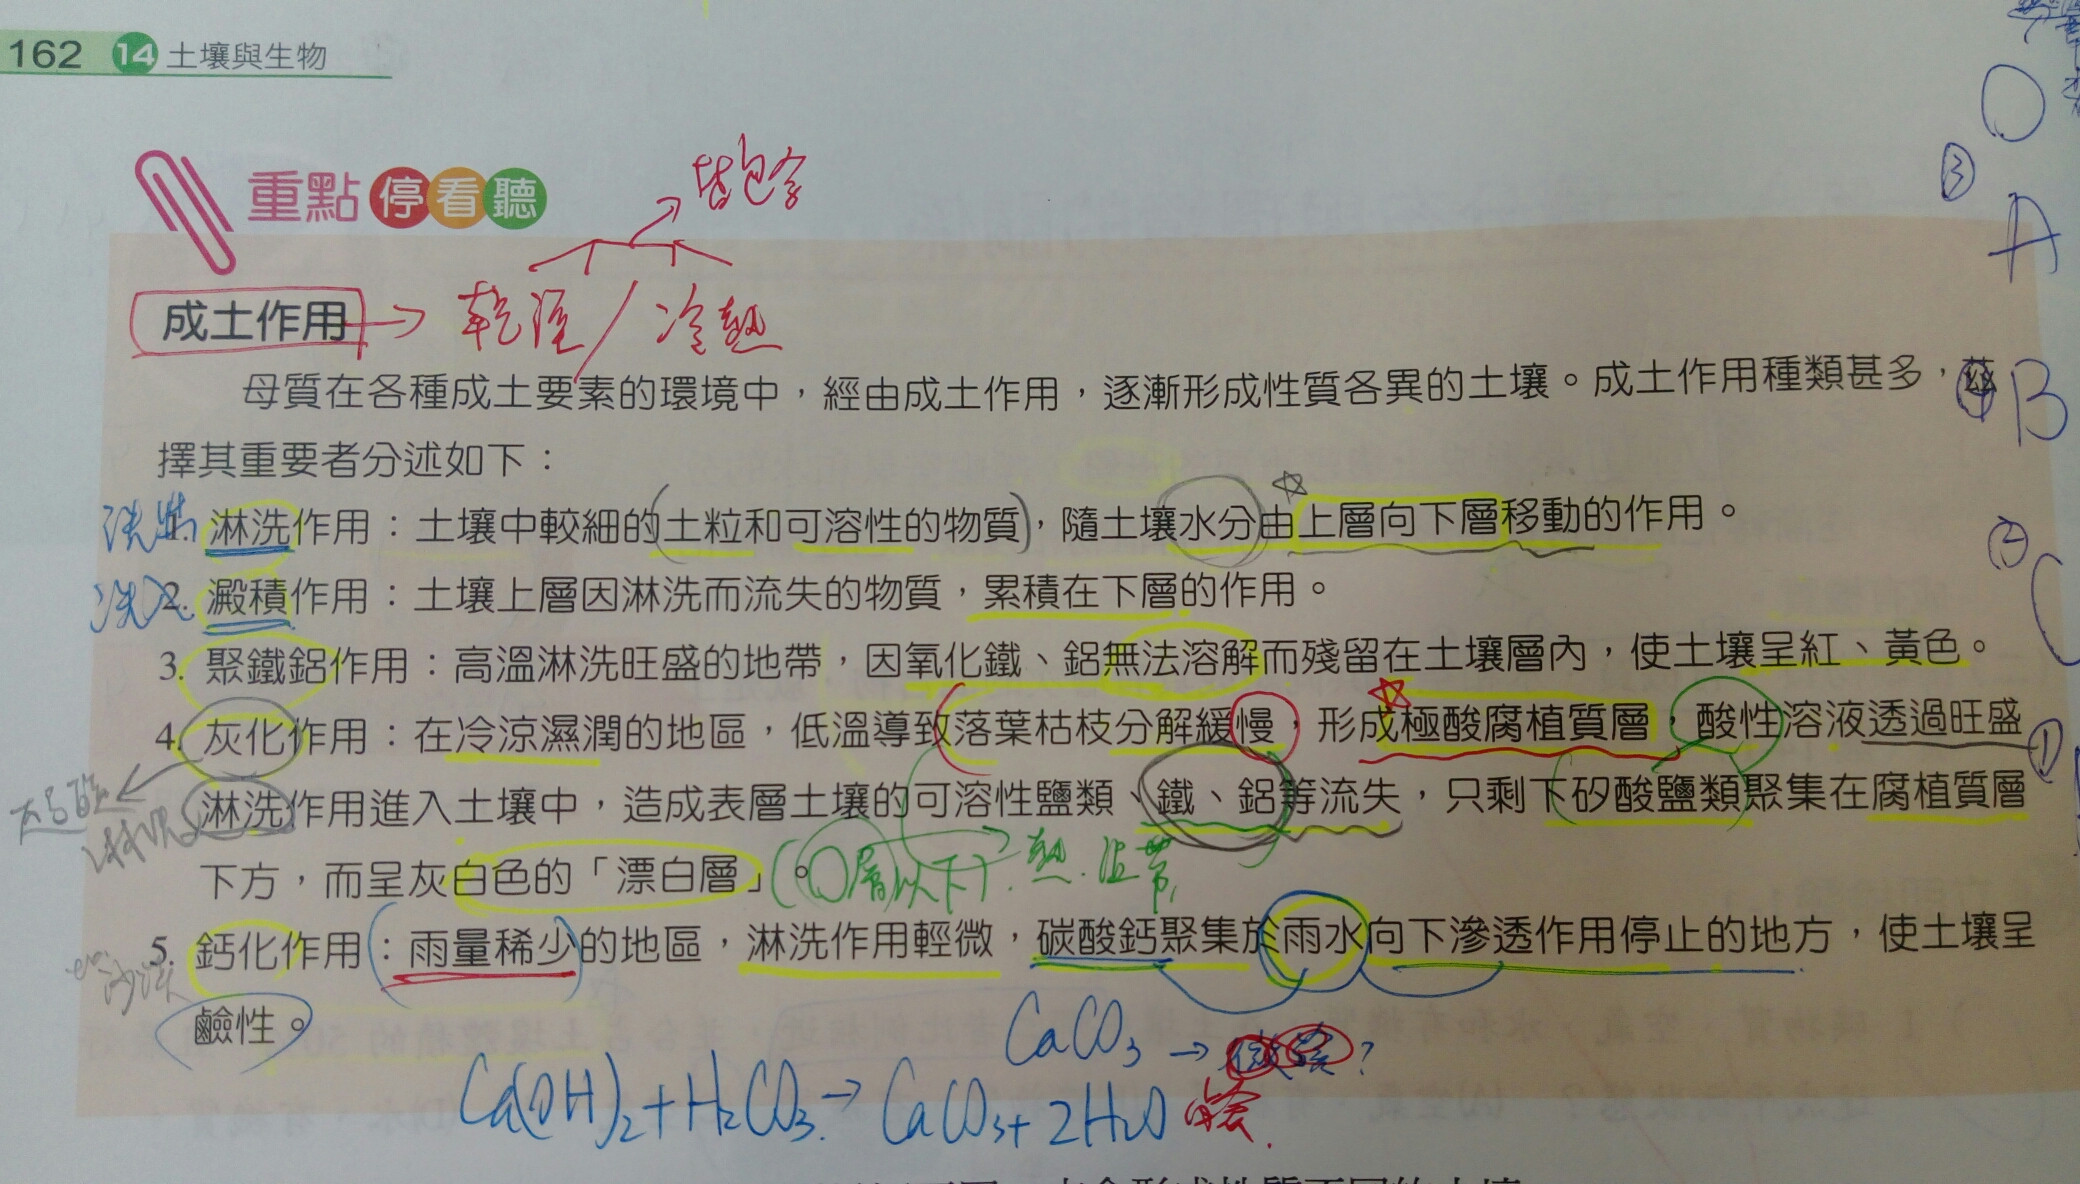 162 14 土壤與生物
重點停看聽
皆包含
成土作用 → 乾溼/冷熱
母質在各種成土要素的環境中，經由成土作用，逐漸形成性質各異的土壤。成土作用種類甚多，茲
擇其重要者分述如下：
1. 淋洗作用：土壤中較細的土粒和可溶性的物質，隨土壤水分由上層向下層移動的作用。
洗出
2. 澱積作用：土壤上層因淋洗而流失的物質，累積在下層的作用。
洗入
3. 聚鐵鋁作用：高溫淋洗旺盛的地帶，因氧化鐵、鋁無法溶解而殘留在土壤層內，使土壤呈紅、黃色。
4. 灰化作用：在冷涼濕潤的地區，低溫導致落葉枯枝分解緩慢，形成極酸腐植質層，酸性溶液透過旺盛
淋洗作用進入土壤中，造成表層土壤的可溶性鹽類、鐵、鋁等流失，只剩下矽酸鹽類聚集在腐植質層
下方，而呈灰白色的「漂白層」。
(O層以下)
5. 鈣化作用：雨量稀少的地區，淋洗作用輕微，碳酸鈣聚集於雨水向下滲透作用停止的地方，使土壤呈
鹼性。
CaCO3 → 微溶?
Ca(OH)2 + H2CO3 → CaCO3 + 2H2O
O
③
A
④ B
② C
①